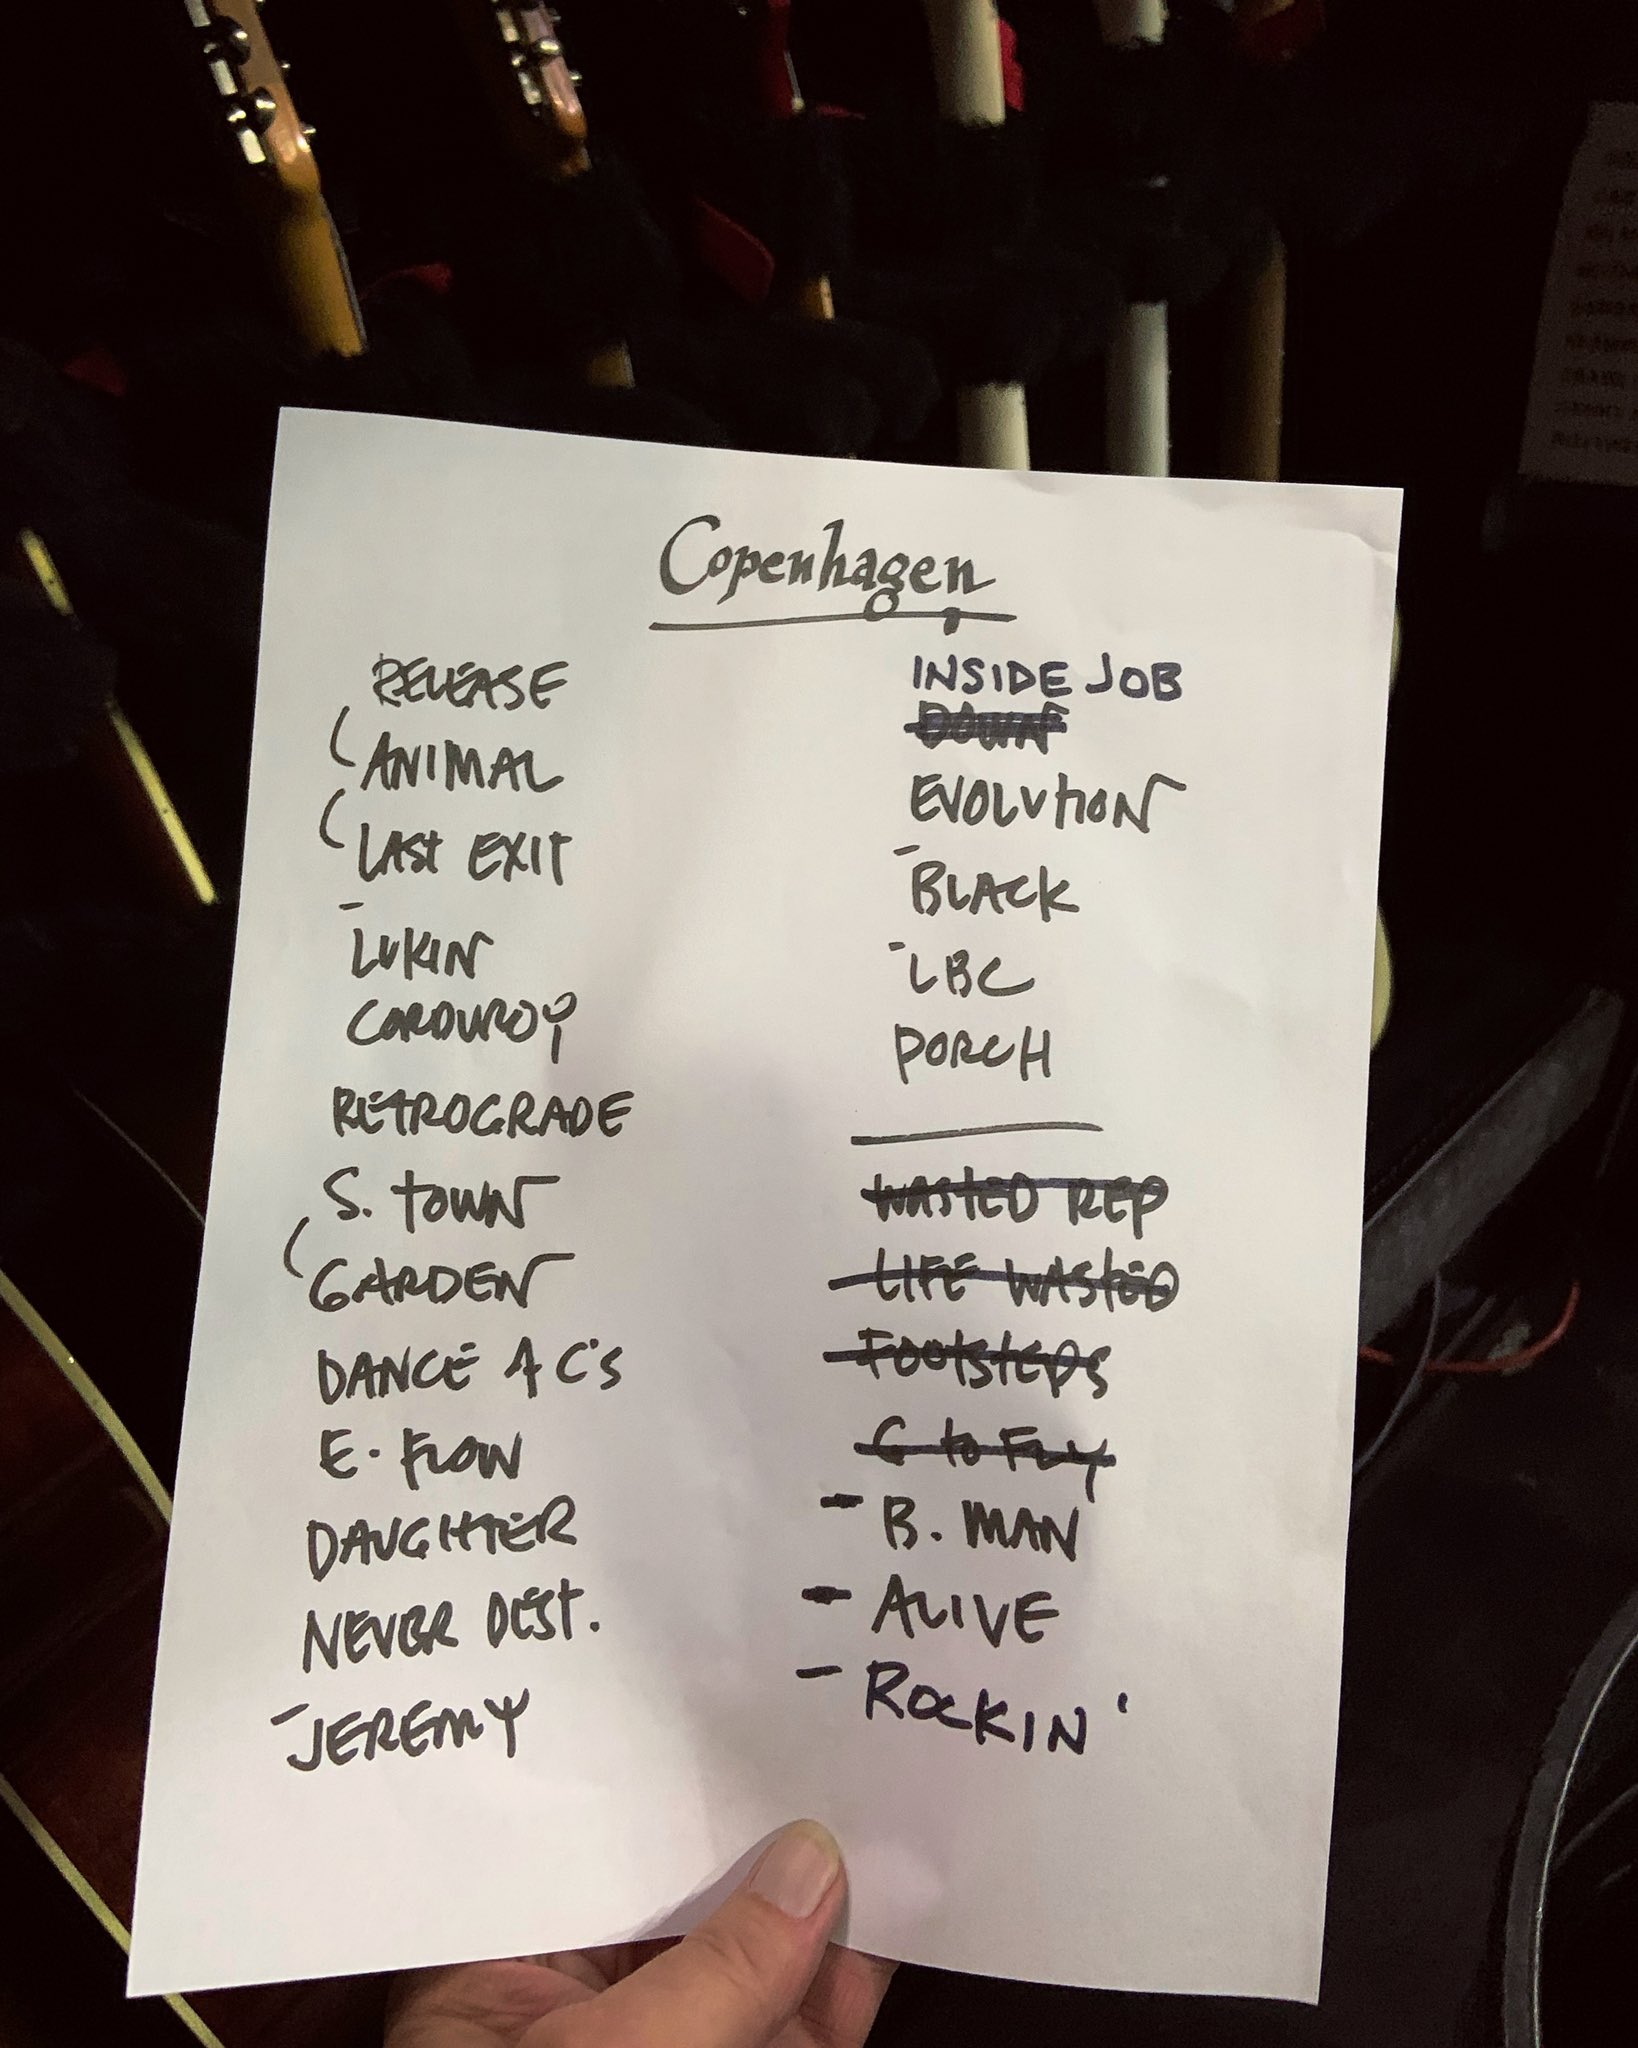 Copenhagen
RELEASE
ANIMAL
LAST EXIT
- LUKIN
CORDUROY
RETROGRADE
S. TOWN
GARDEN
DANCE A C's
E. FLOW
DAUGHTER
NEVER DEST.
- JEREMY
INSIDE JOB
DOWN
EVOLUTION
- BLACK
- LBC
PORCH
WASTED REP
LIFE WASTED
FOOTSTEPS
G to FLY
- B. MAN
- ALIVE
- ROCKIN'